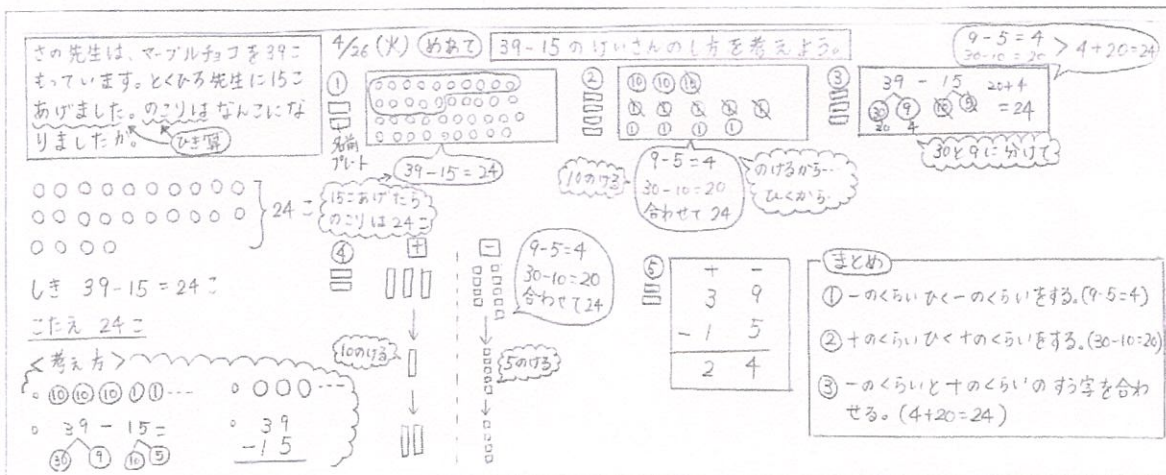 さの先生は、マーブルチョコを39こ
もっています。とくひろ先生に15こ
あげました。のこりはなんこにな
りましたか。
ひき算
24こ
しき 39-15=24こ
こたえ 24こ
<考え方>
。⑩⑩⑩①①…
。○○○…
。39-15=
30 9 10 5
。39
-15
4/26(火) めあて 39-15のけいさんのし方を考えよう。
①
名前
プレート
39-15=24
15こあげたら
のこりは24こ
②
⑩⑩⑩
①①①①①
①①①①
10のける
9-5=4
30-10=20
合わせて24
のけるから…
ひくから…
③
39-15
20+4
=24
30 9 10 5
20 4
30と9に分けて
9-5=4
30-10=20
4+20=24
④
十 一
10のける
5のける
9-5=4
30-10=20
合わせて24
⑤
十 一
3 9
-1 5
2 4
まとめ
①一のくらいひく一のくらいをする。(9-5=4)
②十のくらいひく十のくらいをする。(30-10=20)
③一のくらいと十のくらいのすう字を合わ
せる。(4+20=24)